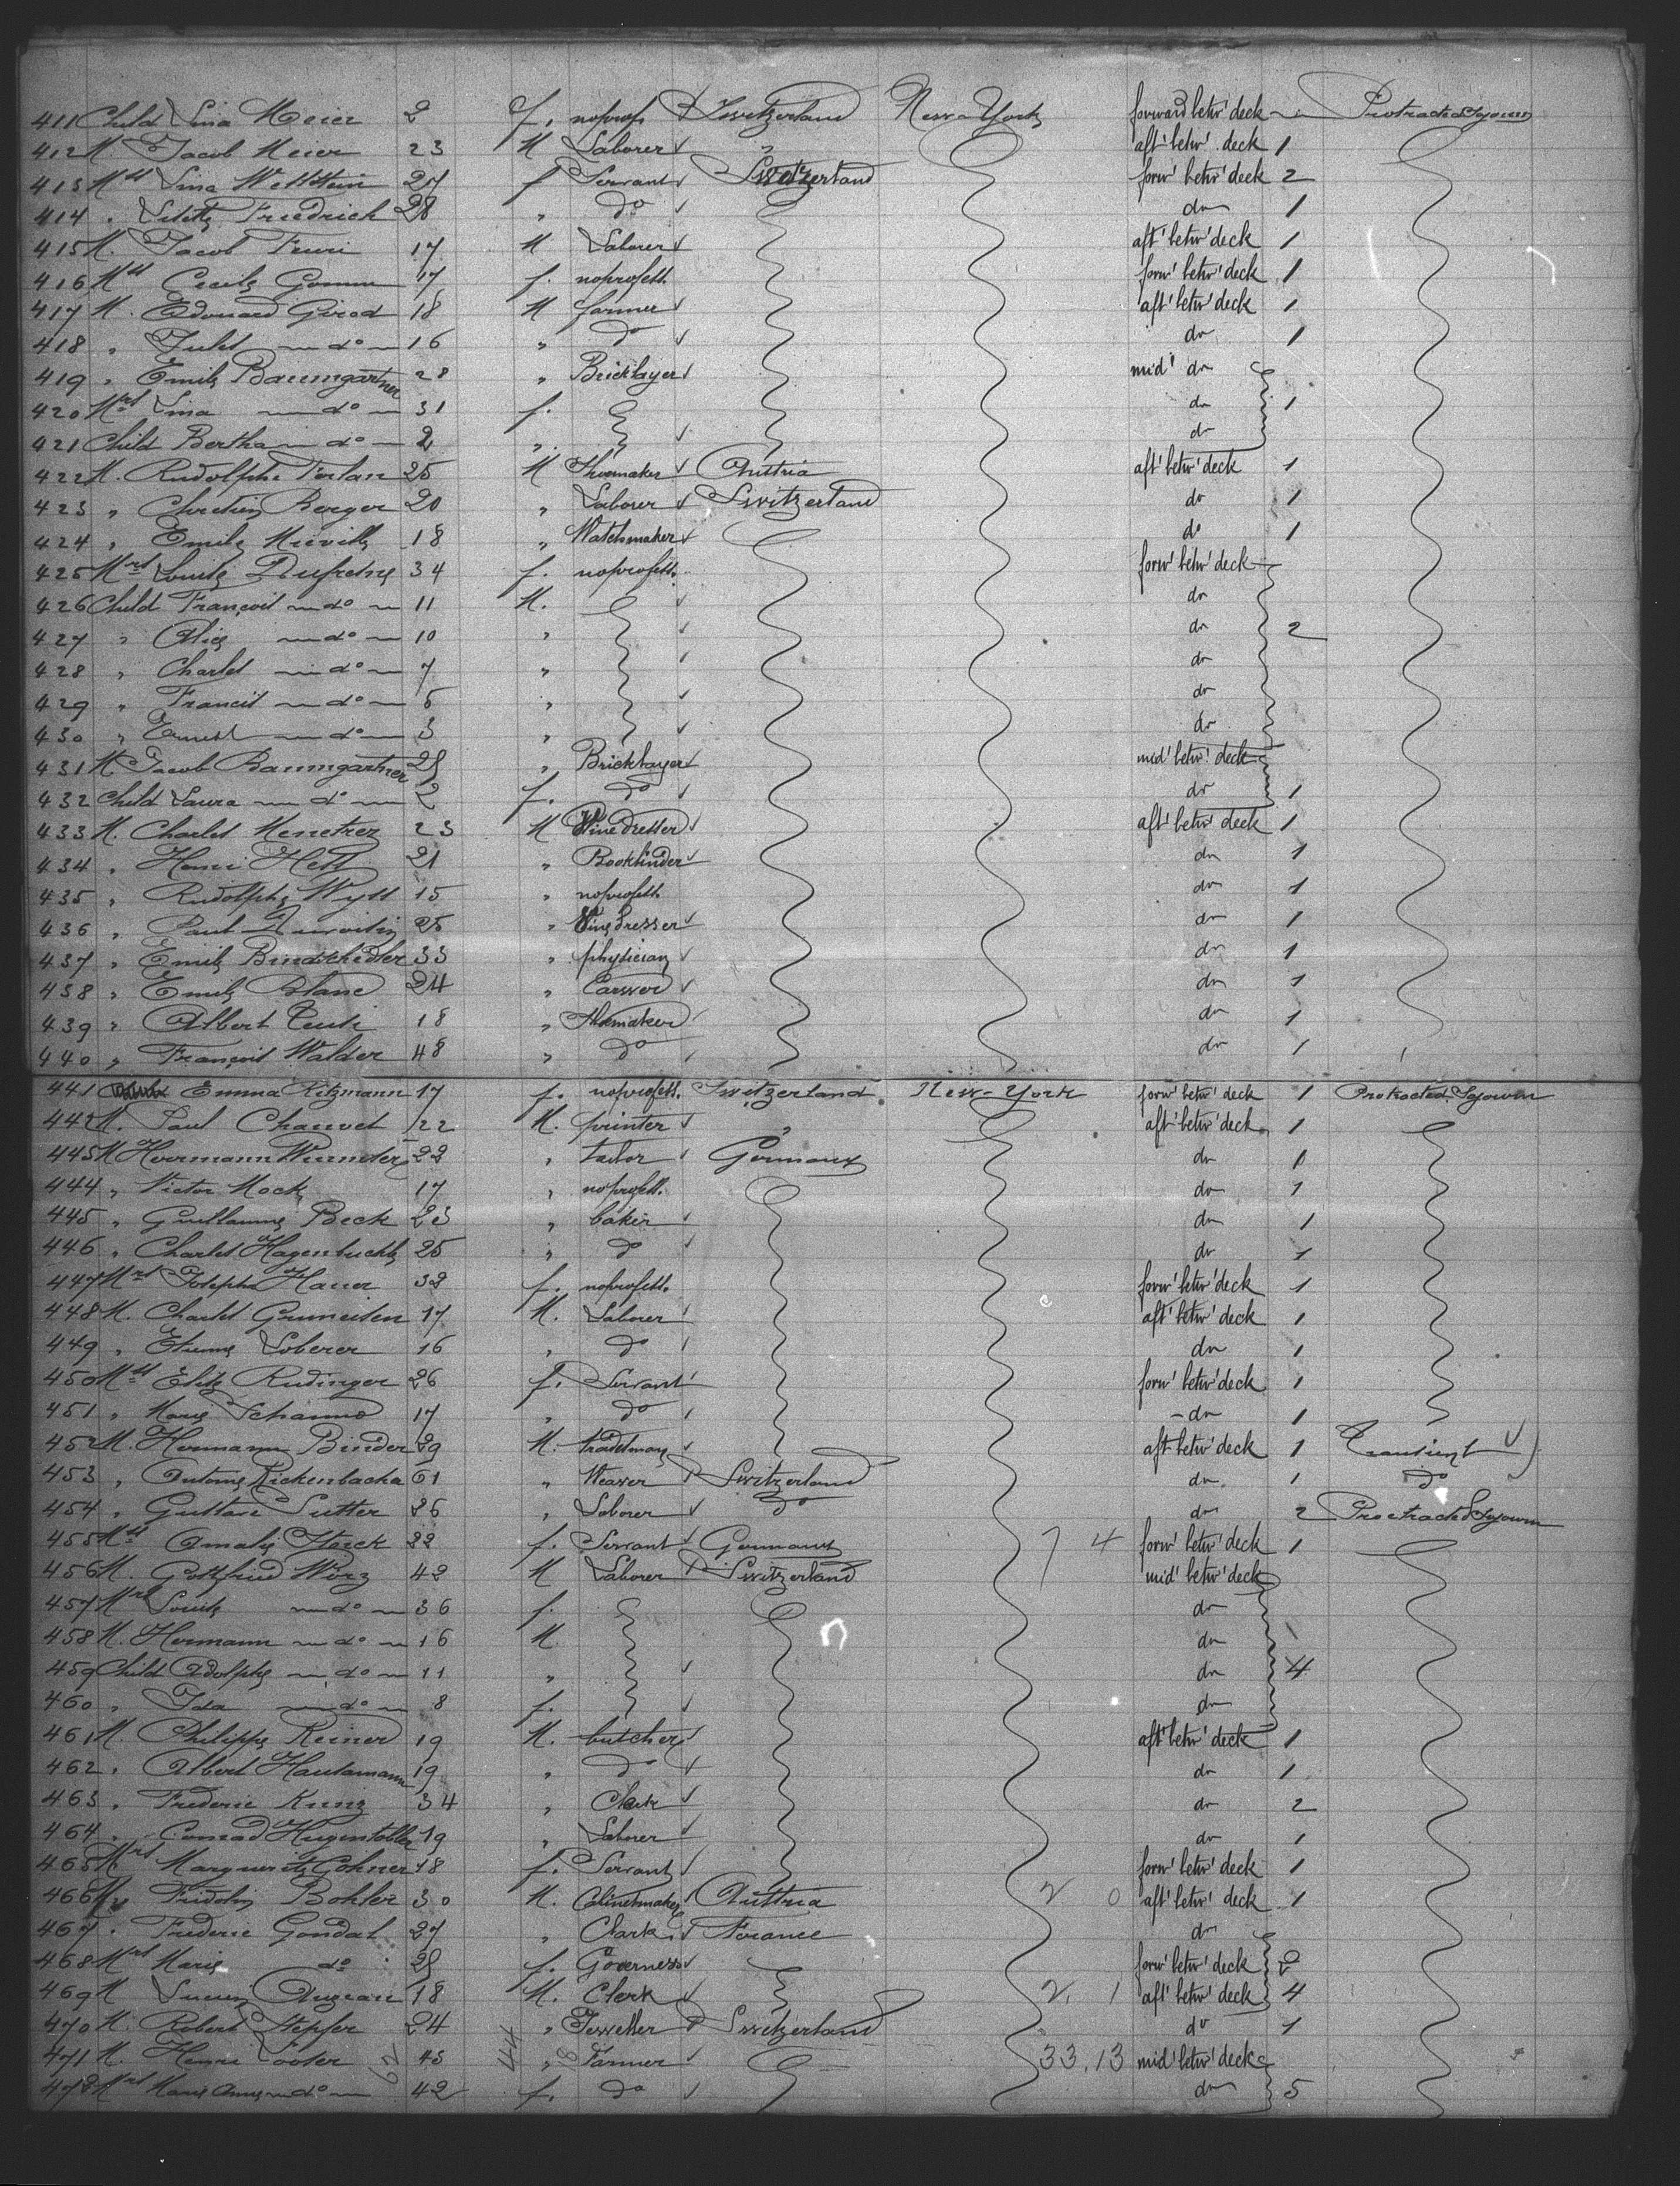 411 Child Lina Meier 2 f. noprofs Switzerland New-York forward betw' deck Protracted Sejourn
412 M. Jacob Meier 23 M Laborer aft' betw' deck 1
413 Mll Lina Wettstein 27 f Servant Switzerland forw' betw' deck 2
414 " Friedrich 28 " do do 1
415 M. Jacob 17 M Laborer aft' betw' deck 1
416 Mll Cecile 17 f. noprofess. forw' betw' deck 1
417 M. Edouard Girod 18 M farmer aft' betw' deck 1
418 " Jules do 16 " do do 1
419 " Emile Baumgartner 28 " Bricklayer mid' do
420 Mrs Lina do 31 f. do 1
421 Child Bertha do 2 " do
422 M. Rudolphe 25 M Shoemaker Austria aft' betw' deck 1
423 " Chretien Berger 20 " Laborer Switzerland do 1
424 " Emile Mieville 18 " Watchmaker do 1
425 Mrs Louise 34 f. noprofess. forw' betw' deck
426 Child François do 11 M. do
427 " Alice do 10 " do 2
428 " Charles do 7 " do
429 " Francis do 5 " do
430 " Ernest do 3 " do
431 M. Jacob Baumgartner " Bricklayer mid' betw' deck
432 Child Laura do 2 f. do do 1
433 M. Charles Menetrez 23 M Vinedresser aft' betw' deck 1
434 " Henri Hess 21 " Bookbinder do 1
435 " Rudolphe Wyss 15 " noprofess. do 1
436 " Paul 25 " Vinedresser do 1
437 " Emile Bindschedler 33 " physician do 1
438 " Emile Blanc 24 " do 1
439 " Albert 18 " do 1
440 " François Walder 48 " do do 1
441 Emma Ritzmann 17 f. noprofess. Switzerland New-York forw' betw' deck 1 Protracted Sejourn
442 M. Paul Chauvet 22 M. printer aft' betw' deck 1
443 M Hermann 22 " tailor Germany do 1
444 " Victor Mock 17 " noprofess. do 1
445 " Guillaume Beck 23 " baker do 1
446 " Charles Hagenbuchle 25 " do do 1
447 Mrs Josepha Hauer 32 f. noprofess. forw' betw' deck 1
448 M. Charles Gruneisen 17 M. Laborer aft' betw' deck 1
449 " Etienne Loberer 16 " do do 1
450 Mll Elise Rudinger 26 f. Servant forw' betw' deck 1
451 " Marie 17 " do do 1
452 M. Hermann Binder 29 M. tradesman aft' betw' deck 1 Transient
453 " Antoine Rickenbacka 61 " Weaver Switzerland do 1 do
454 " Gustave Sutter 26 " Laborer do do 2 Protracted Sejourn
455 Mll Amalie Storck 22 f. Servant Germany 7 4 forw' betw' deck 1
456 M. Gottfried Wörz 42 M Laborer Switzerland mid' betw' deck
457 Mrs Louise do 36 f. do
458 M. Hermann do 16 M. do
459 Child Adolphe do 11 " do 4
460 " Ida do 8 f. do
461 M. Philippe Reiner 19 M. butcher aft' betw' deck 1
462 " Albert Hautamann 19 " do do 1
463 " Frederic Kunz 34 " Clerk do 2
464 " Conrad Hugentobler 19 " Laborer do 1
465 Mrs Marguerite Gohner 18 f. Servant forw' betw' deck 1
466 M Fridolin Bohler 30 M. Cabinetmaker Austria 2 0 aft' betw' deck 1
467 " Frederic Gondat 27 " Clerk France do
468 Mrs Marie do f. Governess forw' betw' deck 2
469 M Lucien 18 M. Clerk 2. 1 aft' betw' deck 4
470 M. Robert 24 " Jeweller Switzerland do 1
471 M. Henri 45 " Farmer 33.13 mid' betw' deck
472 Mrs Marie Anne do 42 f. do do 5
62 44 8